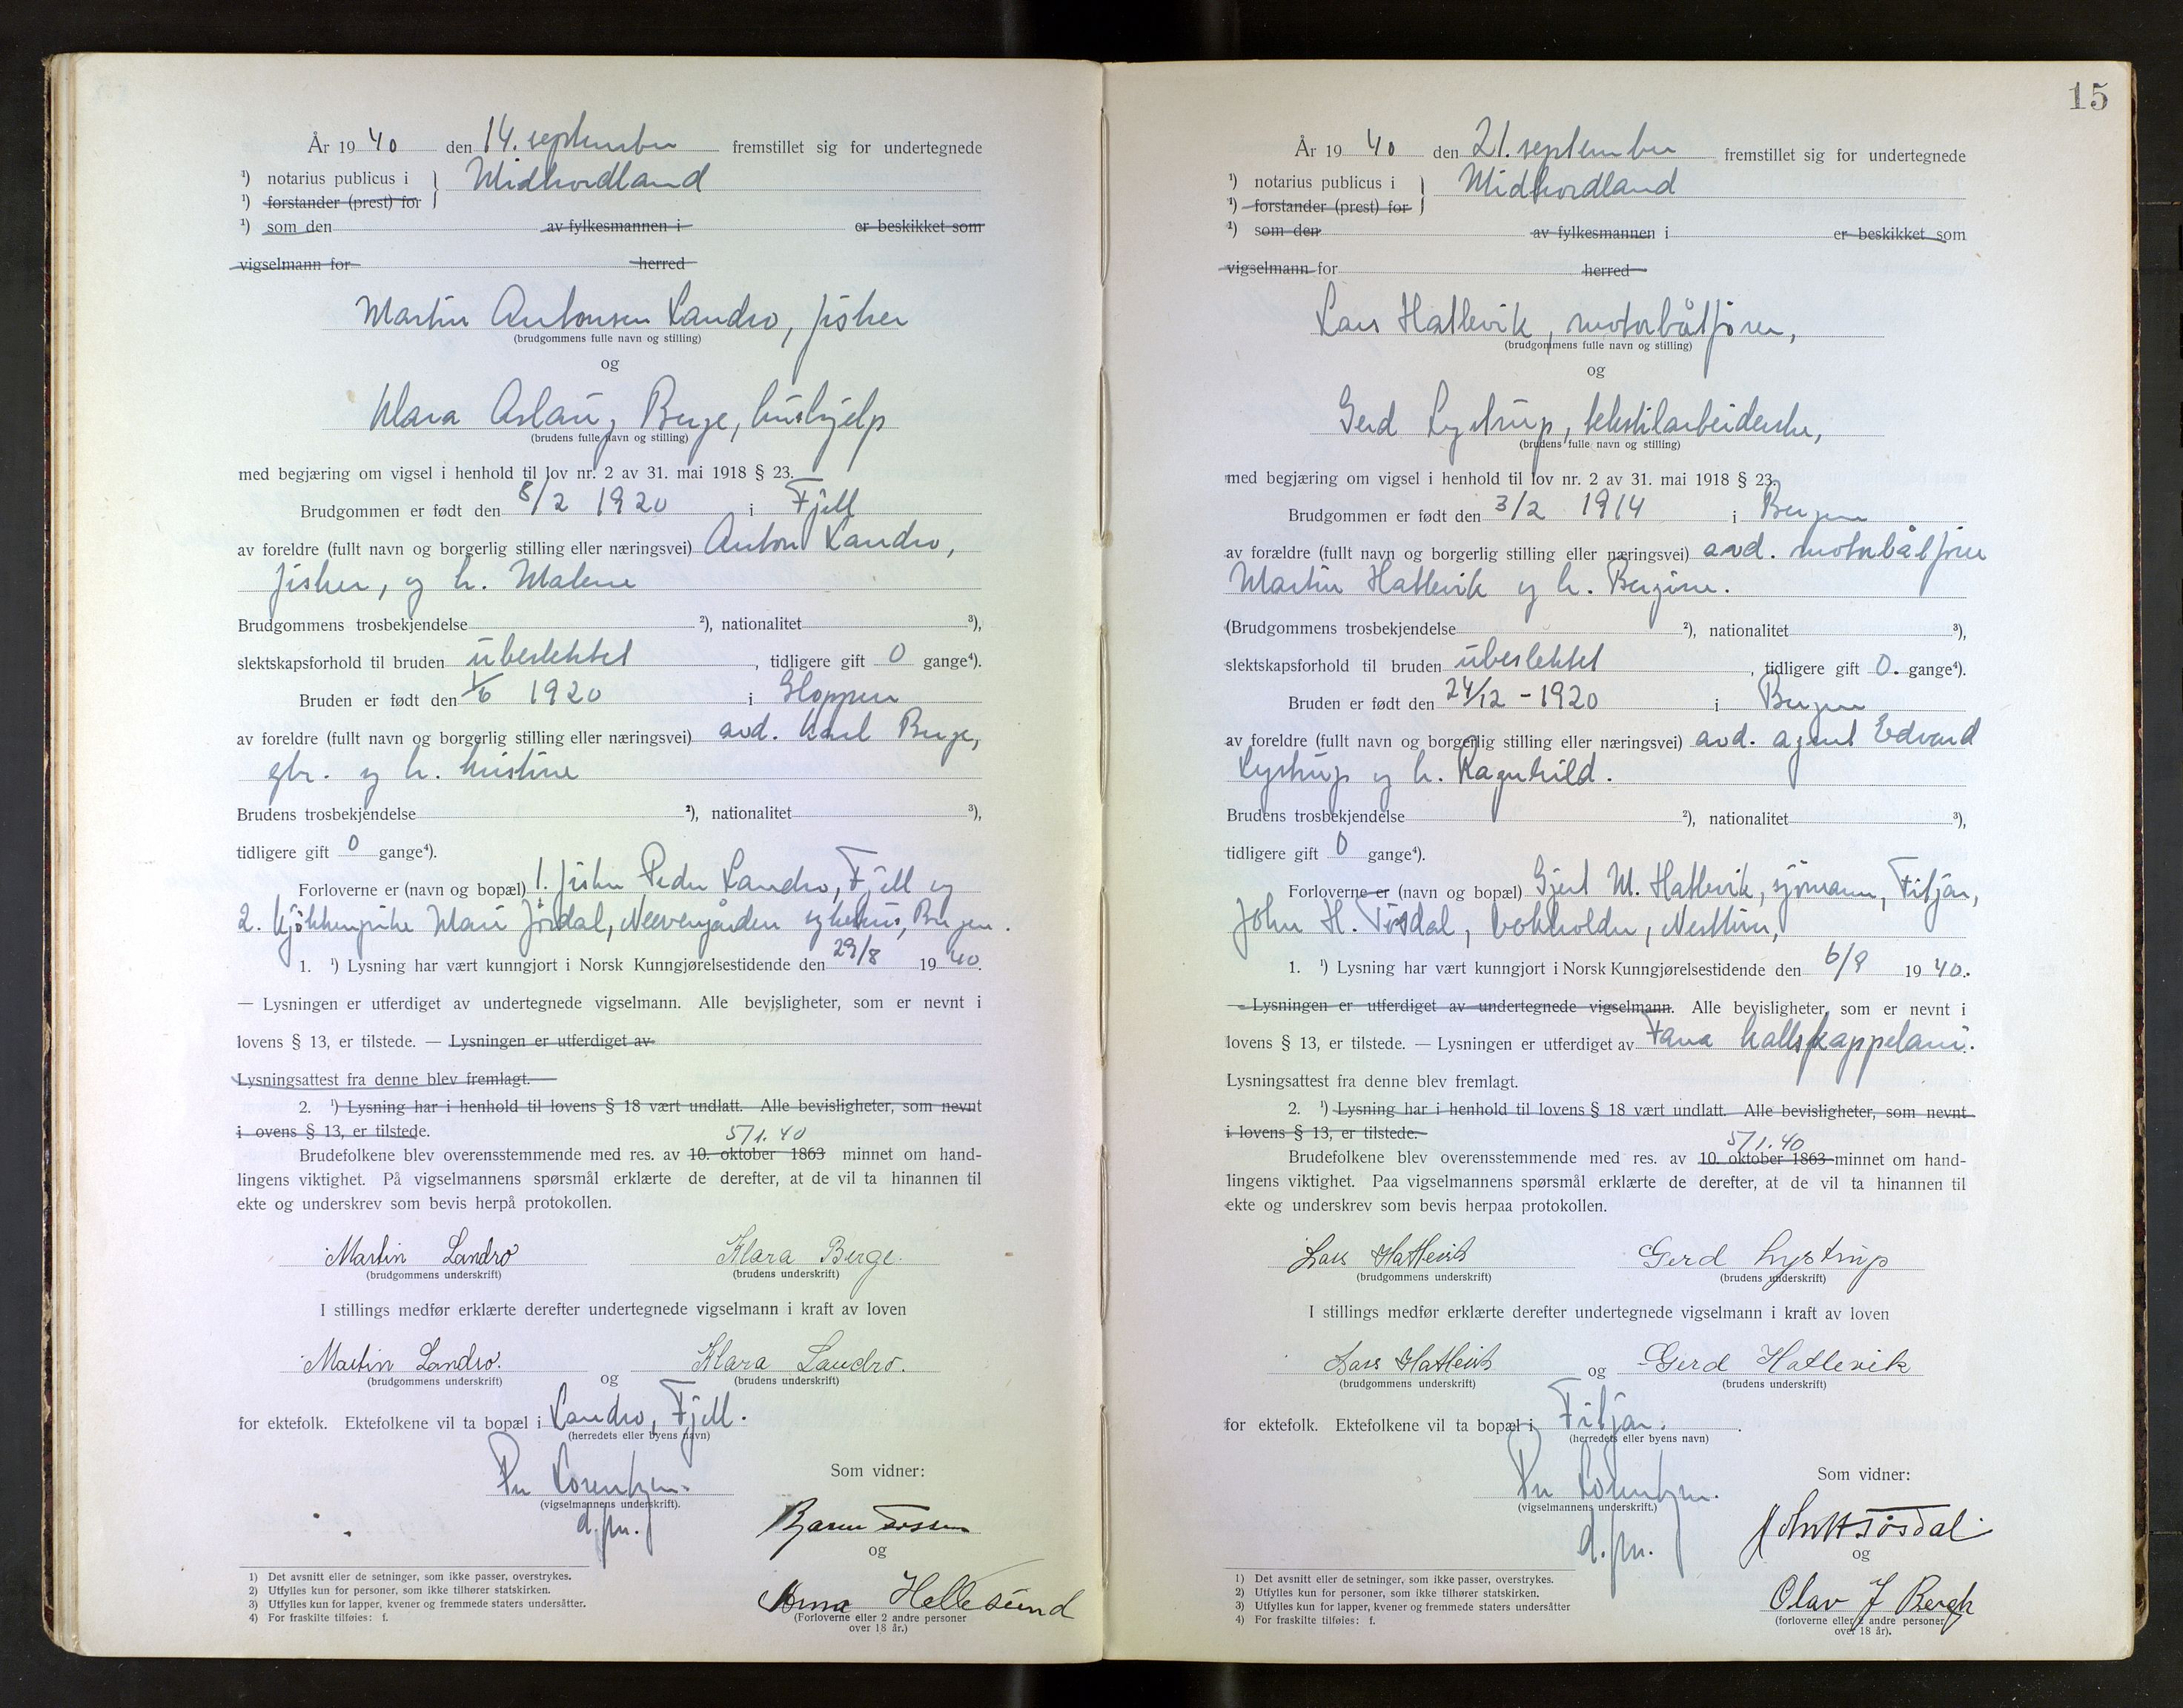 År 1940 den 14. september fremstillet sig for undertegnede
¹) notarius publicus i } Midhordland
¹) forstander (prest) for
¹) som den av fylkesmannen i er beskikket som
vigselmann for herred
Martin Antonsen Landro, fisker
(brudgommens fulle navn og stilling)
og
Klara Aslaug Berge, hushjelp
(brudens fulle navn og stilling)
med begjæring om vigsel i henhold til lov nr. 2 av 31. mai 1918 § 23.
Brudgommen er født den 8/2 1920 i Fjell
av foreldre (fullt navn og borgerlig stilling eller næringsvei) Anton Landro,
fisker, og h. Malene
Brudgommens trosbekjendelse ²), nationalitet ³),
slektskapsforhold til bruden ubeslektet, tidligere gift 0 gange⁴).
Bruden er født den 1/6 1920 i Gloppen
av foreldre (fullt navn og borgerlig stilling eller næringsvei) avd. Karl Berge,
gbr. og h. Kristine
Brudens trosbekjendelse ²), nationalitet ³),
tidligere gift 0 gange⁴).
Forloverne er (navn og bopæl) 1. fisker Peder Landro, Fjell og
2. Kjökkenpike Mari Jordal, Neevengården sykehus, Bergen.
1. ¹) Lysning har vært kunngjort i Norsk Kunngjørelsestidende den 29/8 1940.
— Lysningen er utferdiget av undertegnede vigselmann. Alle bevisligheter, som er nevnt i
lovens § 13, er tilstede. — Lysningen er utferdiget av
Lysningsattest fra denne blev fremlagt.
2. ¹) Lysning har i henhold til lovens § 18 vært undlatt. Alle bevisligheter, som nevnt
i ovens § 13, er tilstede.
5/1.40
Brudefolkene blev overensstemmende med res. av 10. oktober 1863 minnet om hand-
lingens viktighet. På vigselmannens spørsmål erklærte de derefter, at de vil ta hinannen til
ekte og underskrev som bevis herpå protokollen.
Martin Landro Klara Berge.
(brudgommens underskrift) (brudens underskrift)
I stillings medfør erklærte derefter undertegnede vigselmann i kraft av loven
Martin Landro. og Klara Landro.
(brudgommens underskrift) (brudens underskrift)
for ektefolk. Ektefolkene vil ta bopæl i Landro, Fjell.
(herredets eller byens navn)
Per Lorentzen.
(vigselmannens underskrift).
d.fm.
Som vidner:
og
Anna Hellesund
(Forloverne eller 2 andre personer
over 18 år.)
1) Det avsnitt eller de setninger, som ikke passer, overstrykes.
2) Utfylles kun for personer, som ikke tilhører statskirken.
3) Utfylles kun for lapper, kvener og fremmede staters undersåtter.
4) For fraskilte tilføies: f.
15
År 1940 den 21. september fremstillet sig for undertegnede
¹) notarius publicus i } Midhordland
¹) forstander (prest) for
¹) som den av fylkesmannen i er beskikket som
vigselmann for herred
Lars Hatlevik, motorbåtförer,
(brudgommens fulle navn og stilling)
og
Gerd Lystrup, tekstilarbeiderske,
(brudens fulle navn og stilling)
med begjæring om vigsel i henhold til lov nr. 2 av 31. mai 1918 § 23.
Brudgommen er født den 3/2 1914 i Bergen
av forældre (fullt navn og borgerlig stilling eller næringsvei) avd. motorbåtförer
Martin Hatlevik og h. Bergine.
(Brudgommens trosbekjendelse ²), nationalitet ³),
slektskapsforhold til bruden ubeslektet, tidligere gift 0. gange⁴).
Bruden er født den 24/12 - 1920 i Bergen
av foreldre (fullt navn og borgerlig stilling eller næringsvei) avd. agent Edvard
Lystrup og h. Ragnhild.
Brudens trosbekjendelse ²), nationalitet ³),
tidligere gift 0 gange⁴).
Forloverne er (navn og bopæl) Gjert M. Hatlevik, sjömann, Fitjar,
John H. Tösdal, bokholder, Nesttun,
1. ¹) Lysning har vært kunngjort i Norsk Kunngjørelsestidende den 6/8 1940.
— Lysningen er utferdiget av undertegnede vigselmann. Alle bevisligheter, som er nevnt i
lovens § 13, er tilstede. — Lysningen er utferdiget av Fana kallskappelani.
Lysningsattest fra denne blev fremlagt.
2. ¹) Lysning har i henhold til lovens § 18 vært undlatt. Alle bevisligheter, som nevnt
i lovens § 13, er tilstede.
5/1.40
Brudefolkene blev overensstemmende med res. av 10. oktober 1863 minnet om hand-
lingens viktighet. Paa vigselmannens spørsmål erklærte de derefter, at de vil ta hinannen til
ekte og underskrev som bevis herpaa protokollen.
Lars Hatlevik Gerd Lystrup
(brudgommens underskrift) (brudens underskrift)
I stillings medfør erklærte derefter undertegnede vigselmann i kraft av loven
Lars Hatlevik og Gerd Hatlevik
(brudgommens underskrift) (brudens underskrift)
for ektefolk. Ektefolkene vil ta bopæl i Fitjar.
(herredets eller byens navn)
Per Lorentzen.
(vigselmannens underskrift.)
d.fm.
Som vidner:
John H Tösdal
og
Olav J Bergh
(forloverne eller 2 andre personer
over 18 år).
1) Det avsnitt eller de setninger, som ikke passer, overstrykes.
2) Utfylles kun for personer, som ikke tilhører statskirken.
3) Utfylles kun for lapper, kvener og fremmede staters undersåtter
4) For fraskilte tilføies: f.